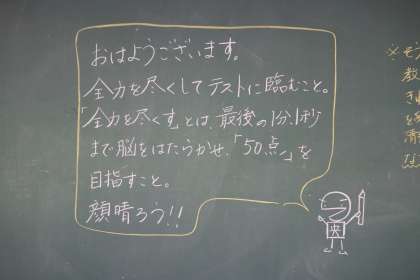 おはようございます。
全力を尽くしてテストに臨むこと。
「全力を尽くす」とは、最後の1分、1秒
まで脳をはたらかせ、「50点」を
目指すこと。
顔晴ろう!!
※モ
教